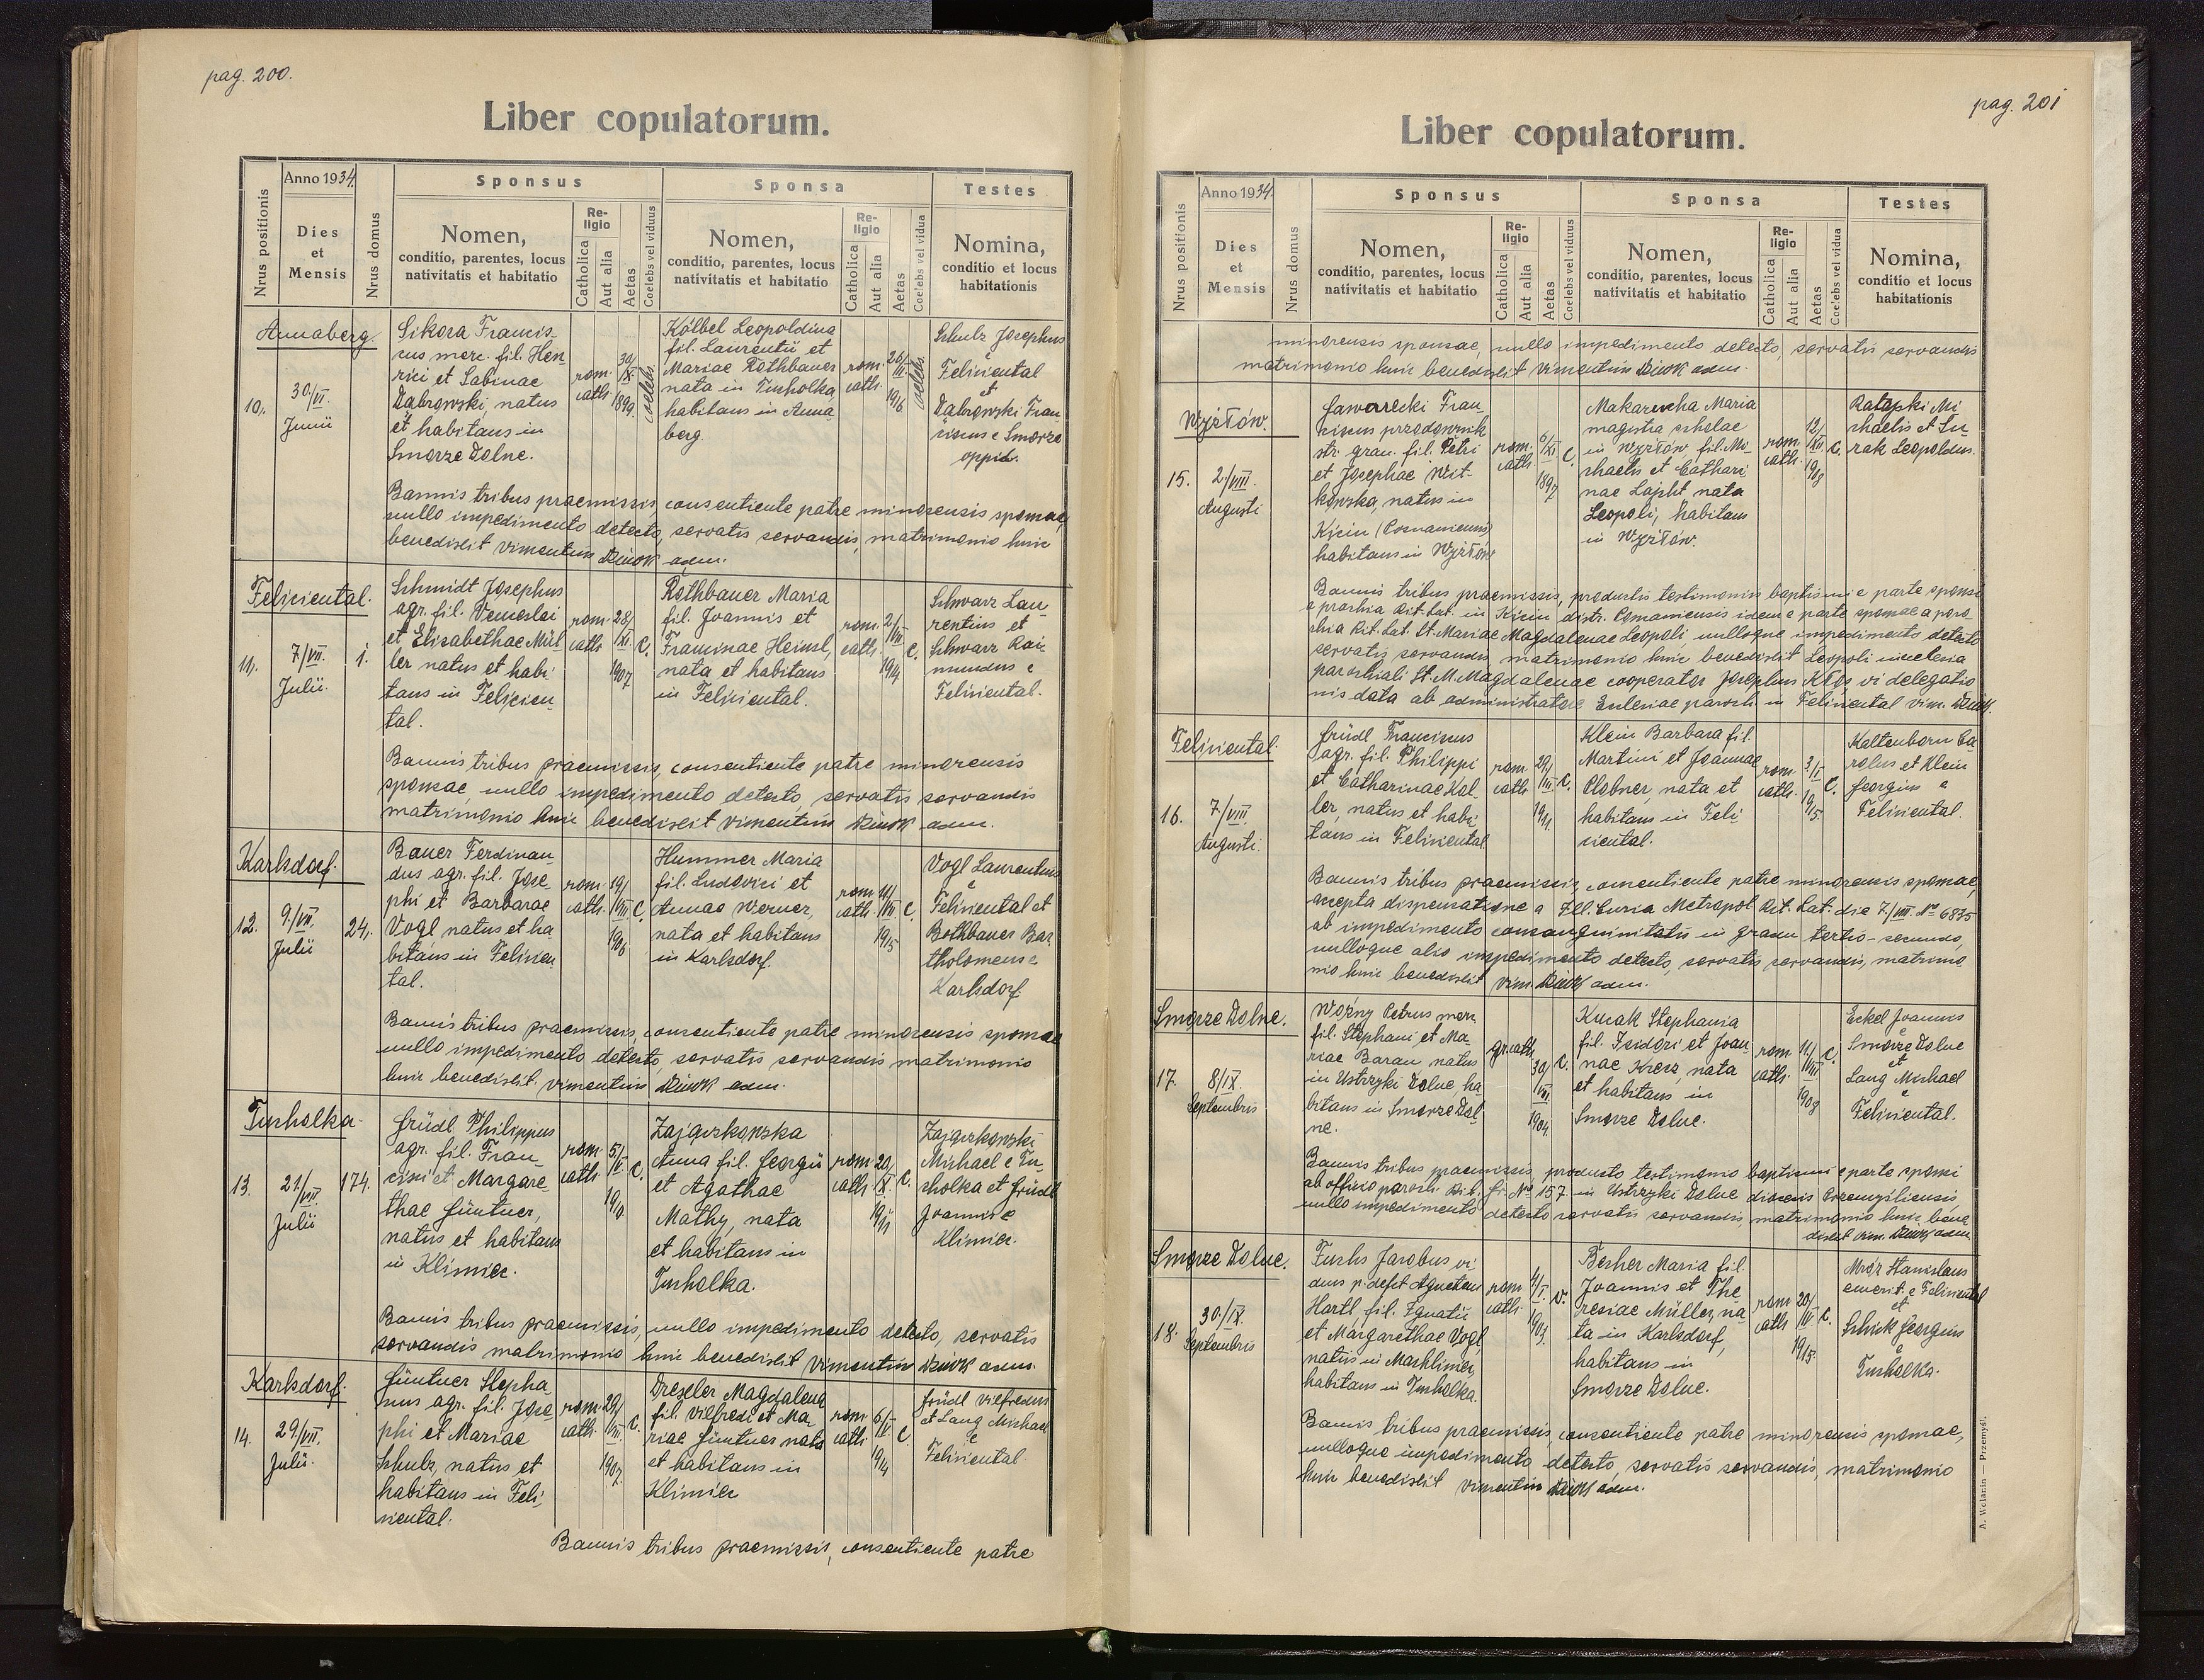 pag. 200.
Liber copulatorum.
Nrus positionis
Anno 1934.
Dies
et
Mensis
Nrus domus
Sponsus
Nomen,
conditio, parentes, locus
nativitatis et habitatio
Re-
ligio
Catholica
Aut alia
Aetas
Coelebs vel viduus
Sponsa
Nomen,
conditio, parentes, locus
nativitatis et habitatio
Re-
ligio
Catholica
Aut alia
Aetas
Coelebs vel vidua
Testes
Nomina,
conditio et locus
habitationis
Annaberg.
10.
30/VI.
Junii
Sikora Francis-
cus merc. fil. Hen-
rici et Sabinae
Dąbrowski, natus
et habitans in
Smorze Dolne.
rom.
cath.
30/
IX.
1899.
coelebs
Kölbel Leopoldina
fil. Laurentii et
Mariae Rothbauer
nata in Tucholka,
habitans in Anna
berg.
rom.
cath.
26/
III.
1916
coelebs
Schulz Josephus
e
Feliciental
et
Dąbrowski Fran
ciscus e Smorze
oppid.
Bannis tribus praemissis, consentiente patre minorensis sponsae,
nullo impedimento detecto, servatis servandis, matrimonio huic
benedixit Vincentius Dziuk adm.
Feliciental.
11.
7/VII.
Julii.
1.
Schmidt Josephus
agr. fil. Venceslai
et Elisabethae Mül
ler natus et habi
tans in Felicien
tal.
rom.
cath
28/
XI.
1907
C.
Rothbauer Maria
fil. Joannis et
Franciscae Heinsl,
nata et habitans
in Feliciental.
rom.
cath.
2/
VII
1914
C.
Schwarz Lau
rentius et
Schwarz Rai
mundus e
Feliciental.
Bannis tribus praemissis, consentiente patre minorensis
sponsae, nullo impedimento detecto, servatis servandis
matrimonio huic benedixit Vincentius Dziuk adm.
Karlsdorf.
12.
9/VII.
Julii
24.
Bauer Ferdinan
dus agr. fil. Jose
phi et Barbarae
Vogl natus et ha
bitans in Felicien
tal.
rom.
cath.
19/
VIII
1906
C.
Hummer Maria
fil. Ludovici et
Annae Werner,
nata et habitans
in Karlsdorf.
rom.
cath.
11/
VII
1915
C.
Vogl Laurentius
e
Feliciental et
Rothbauer Bar
tholomeus e
Karlsdorf
Bannis tribus praemissis, consentiente patre minorensis sponsae
nullo impedimento detecto, servatis servandis matrimonio
huic benedixit Vincentius Dziuk adm.
Tucholka.
13.
21/
VII.
Julii
174.
Gründl Philippus
agr. fil. Fran
cisci et Margare
thae Güntner,
natus et habitans
in Klimiec.
rom.
cath
5/
V.
1910
C.
Zajączkowska
Anna fil. Georgii
et Agathae
Mathy, nata
et habitans in
Tucholka.
rom.
cath.
20/
X.
1911
C.
Zajączkowski
Michael e Tu-
cholka et Gründl
Joannis e
Klimiec.
Bannis tribus praemissis, nullo impedimento detecto, servatis
servandis matrimonio huic benedixit Vincentius Dziuk adm.
Karlsdorf.
14.
29./VII.
Julii.
Güntner Stepha
nus agr. fil. Jose
phi et Mariae
Schulz, natus et
habitans in Feli
ciental.
rom.
cath.
29/
VII.
1907
C.
Drexler Magdalena
fil. Vilfredi et Ma
riae Güntner nata
et habitans in
Klimiec
rom.
cath
6/
IV.
1914
C.
Gründl Vilfredus
et Lang Michael
e
Feliciental.
Bannis tribus praemissis, consentiente patre
pag. 201
Liber copulatorum.
Nrus positionis
Anno 1934.
Dies
et
Mensis
Nrus domus
Sponsus
Nomen,
conditio, parentes, locus
nativitatis et habitatio
Re-
ligio
Catholica
Aut alia
Aetas
Coelebs vel viduus
Sponsa
Nomen,
conditio, parentes, locus
nativitatis et habitatio
Re-
ligio
Catholica
Aut alia
Aetas
Coelebs vel vidua
Testes
Nomina,
conditio et locus
habitationis
minorensis sponsae, nullo impedimento detecto, servatis servandis
matrimonio huic benedixit Vincentius Dziuk adm.
Wyżłów.
15.
2/VIII.
Augusti
Jaworecki Fran-
ciscus przodownik
str. gran. fil. Petri
et Josephae Wit-
kowska, natus in
Kicin (Posnaniensis)
habitans in Wyżłów
rom.
cath.
6/
XI
1897
C.
Makarucha Maria
magistra scholae
in Wyżłów fil. Mi-
chaelis et Cathari
nae Lajcht nata
Leopoli, habitans
in Wyżłów.
rom.
cath.
12/
XII.
1908
C.
Ratapki Mi
chaelis et Su-
rak Leopoldus.
Bannis tribus praemissis, productis testimoniis baptismi e parte sponsi
a parochia Rit. Lat. in Kicin distr. Posnaniensis idem e parte sponsae a paro
chia Rit. Lat. St. Mariae Magdalenae Leopoli, nulloque impedimento detecto
servatis servandis, matrimonio huic benedixit Leopoli in ecclesia
parochiali St. M. Magdalenae cooperator Josephus Kłos vi delegatio
nis data ab administratore Ecclesiae paroch. in Feliciental Vinc. Dziuk.
Feliciental.
16.
7/VIII
Augusti.
Gründl Franciscus
agr. fil. Philippi
et Catharinae Kol
ler, natus et habi
tans in Feliciental
rom.
cath
29/
III
1911.
C.
Klein Barbara fil.
Martini et Joannae
Clobner, nata et
habitans in Feli
ciental.
rom.
cath.
3/I
1915.
C.
Kaltenborn Ca
rolus et Klein
Georgius e
Feliciental.
Bannis tribus praemissis, consentiente patre minorensis sponsae,
accepta dispensatione a Ill. Curia Metropol. Rit. Lat. die 7./VIII. No 6835
ab impedimento consanguinitatis in gradu tertio-secundo,
nulloque alio impedimento detecto, servatis servandis, matrimo
nio huic benedixit Vinc. Dziuk adm.
Smorze Dolne.
17.
8/IX.
Septembris
Woźny Petrus merc
fil. Stephani et Ma-
riae Baran, natus
in Ustrzyki Dolne, ha
bitans in Smorze Dol
ne.
gr. cath.
30/
VII
1904.
C.
Kurak Stephania
fil. Isidori et Joan-
nae Kierz, nata
et habitans in
Smorze Dolne.
rom.
cath.
11/
VIII
1908
C.
Eckel Joannis
e
Smorze Dolne
et
Lang Michael
e
Feliciental.
Bannis tribus praemissis, producto testimonio baptismi e parte sponsi
ab officio paroch. Rit. Gr. No 157 in Ustrzyki Dolne diocesis Przemyśliensis,
nullo impedimento detecto servatis servandis, matrimonio huic bene
dixit Vinc. Dziuk adm.
Smorze Dolne.
18.
30./IX.
Septembris
Fuchs Jacobus vi
duus p. defct Agnetem
Hartl, fil. Ignatii
et Margarethae Vogl,
natus in Machliniec,
habitans in Tucholka.
rom
cath.
4/I.
1903.
V.
Becher Maria fil.
Joannis et The
resiae Müller, na
ta in Karlsdorf,
habitans in
Smorze Dolne.
rom
cath
20/
IV
1915.
C.
Mróz Stanislaus
emerit. e Feliciental
et
Schick Georgius
e
Tucholka.
Bannis tribus praemissis, consentiente patre minorensis sponsae,
nulloque impedimento detecto, servatis servandis, matrimonio
huic benedixit Vincentius Dziuk adm.
A. Wolanin — Przemyśl.